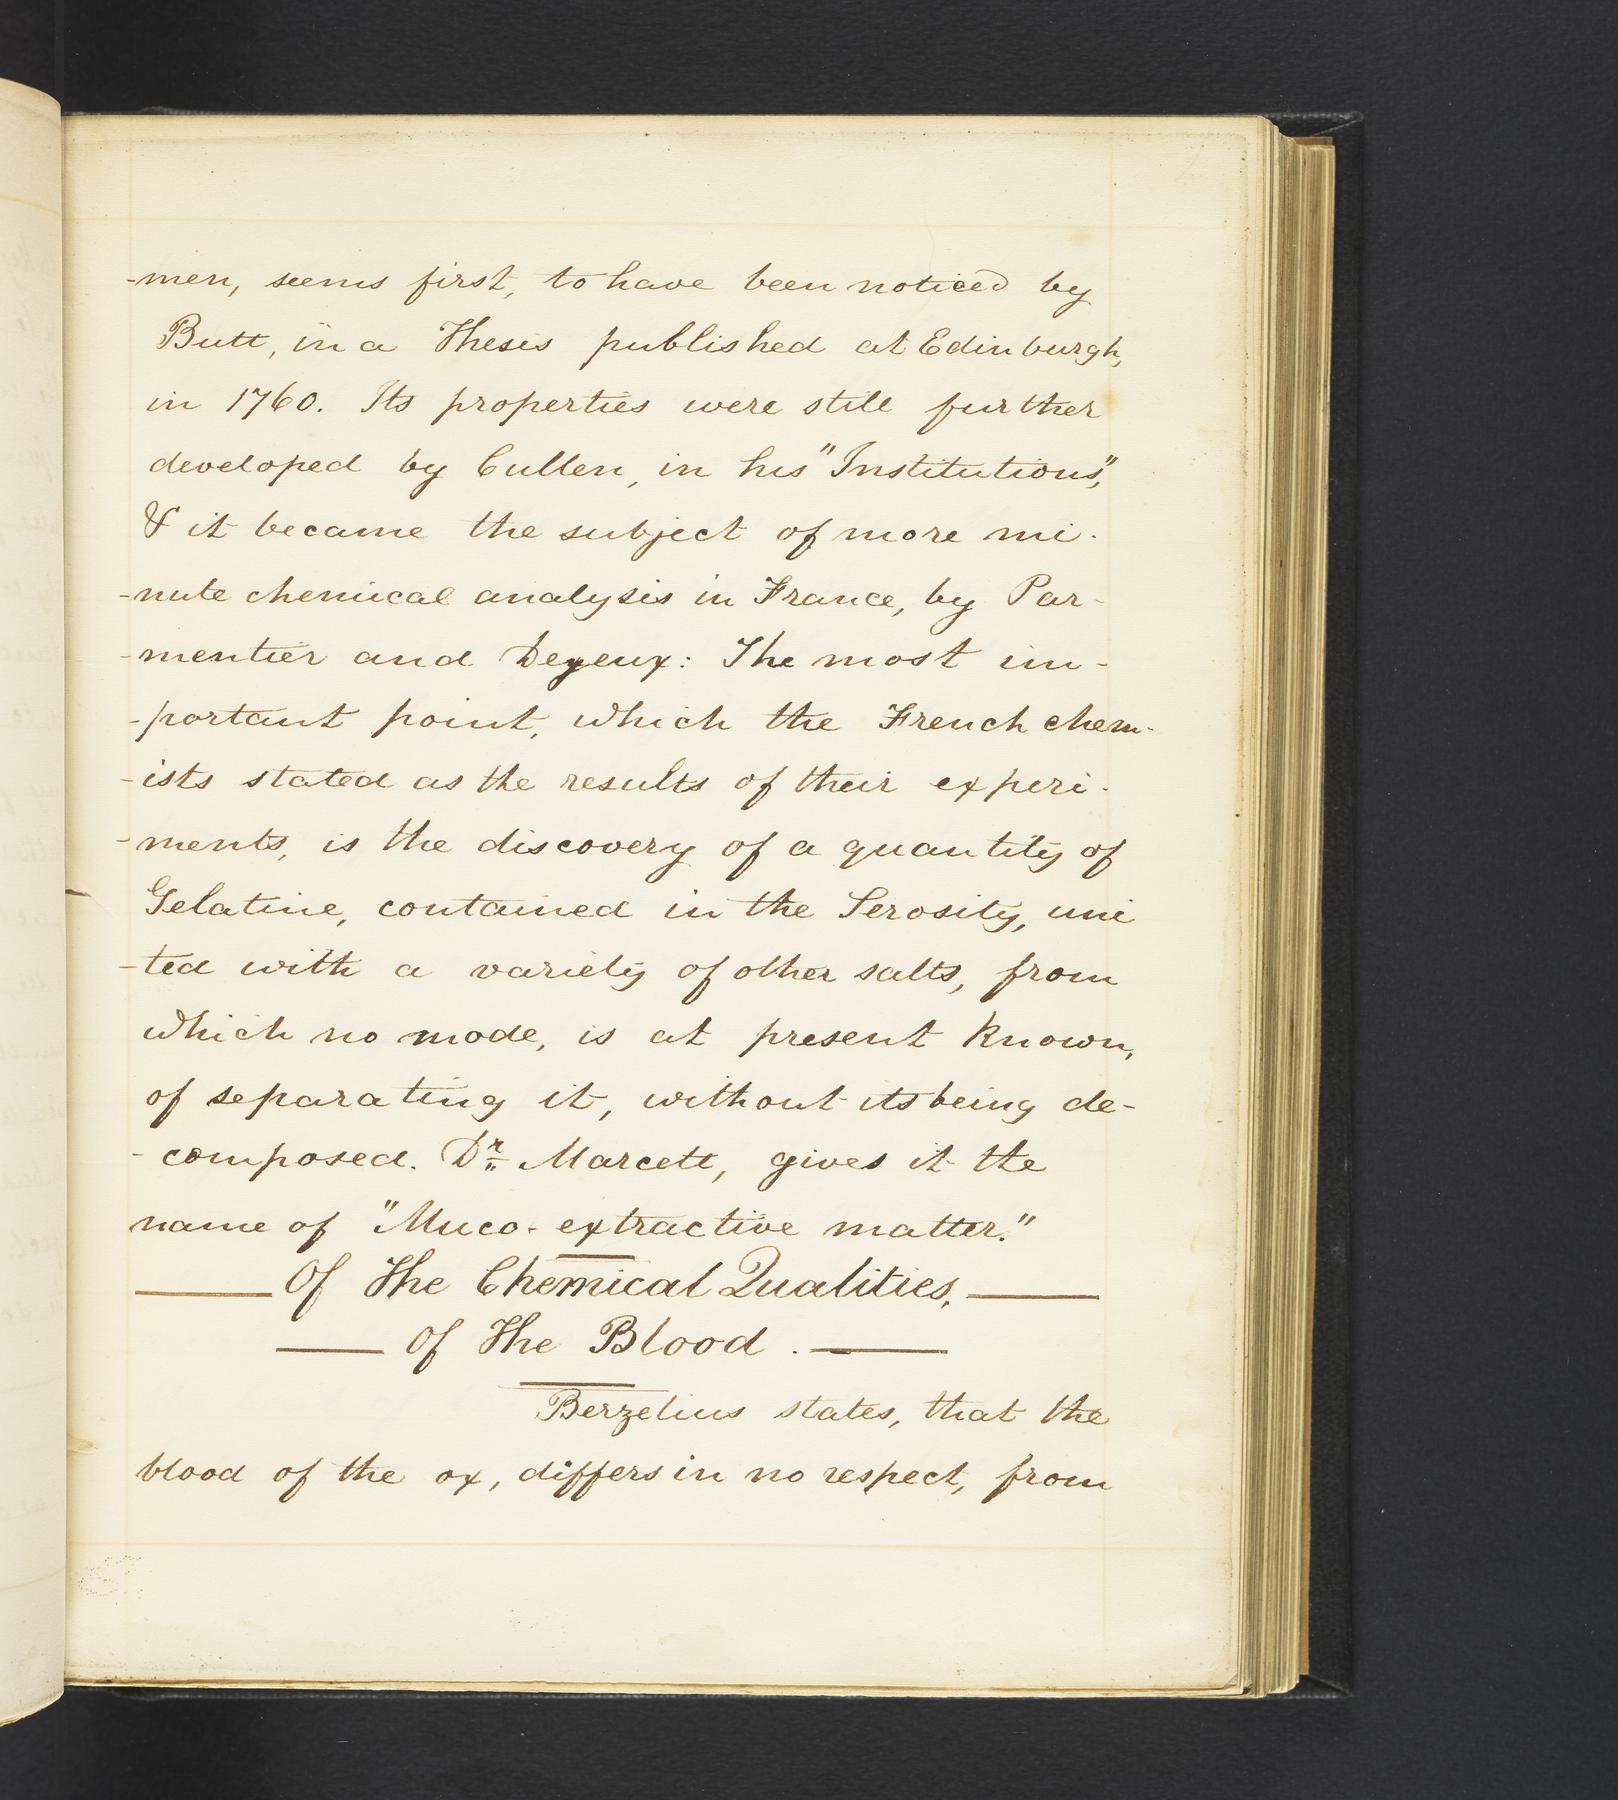 -men, seems first, to have been noticed by
Butt, in a Thesis published at Edinburgh,
in 1760. Its properties were still further
developed by Cullen, in his "Institutions",
& it became the subject of more mi-
-nute chemical analysis in France, by Par-
-mentier and Deyeux: The most im-
-portant point, which the French chem-
-ists stated as the results of their experi-
-ments, is the discovery of a quantity of
Gelatine, contained in the Serosity, uni
-ted with a variety of other salts, from
which no mode, is at present known,
of separating it, without its being de-
-composed. Dr. Marcett, gives it the
name of "Muco-extractive matter."
Of The Chemical Qualities,
Of The Blood.
Berzelius states, that the
blood of the ox, differs in no respect, from